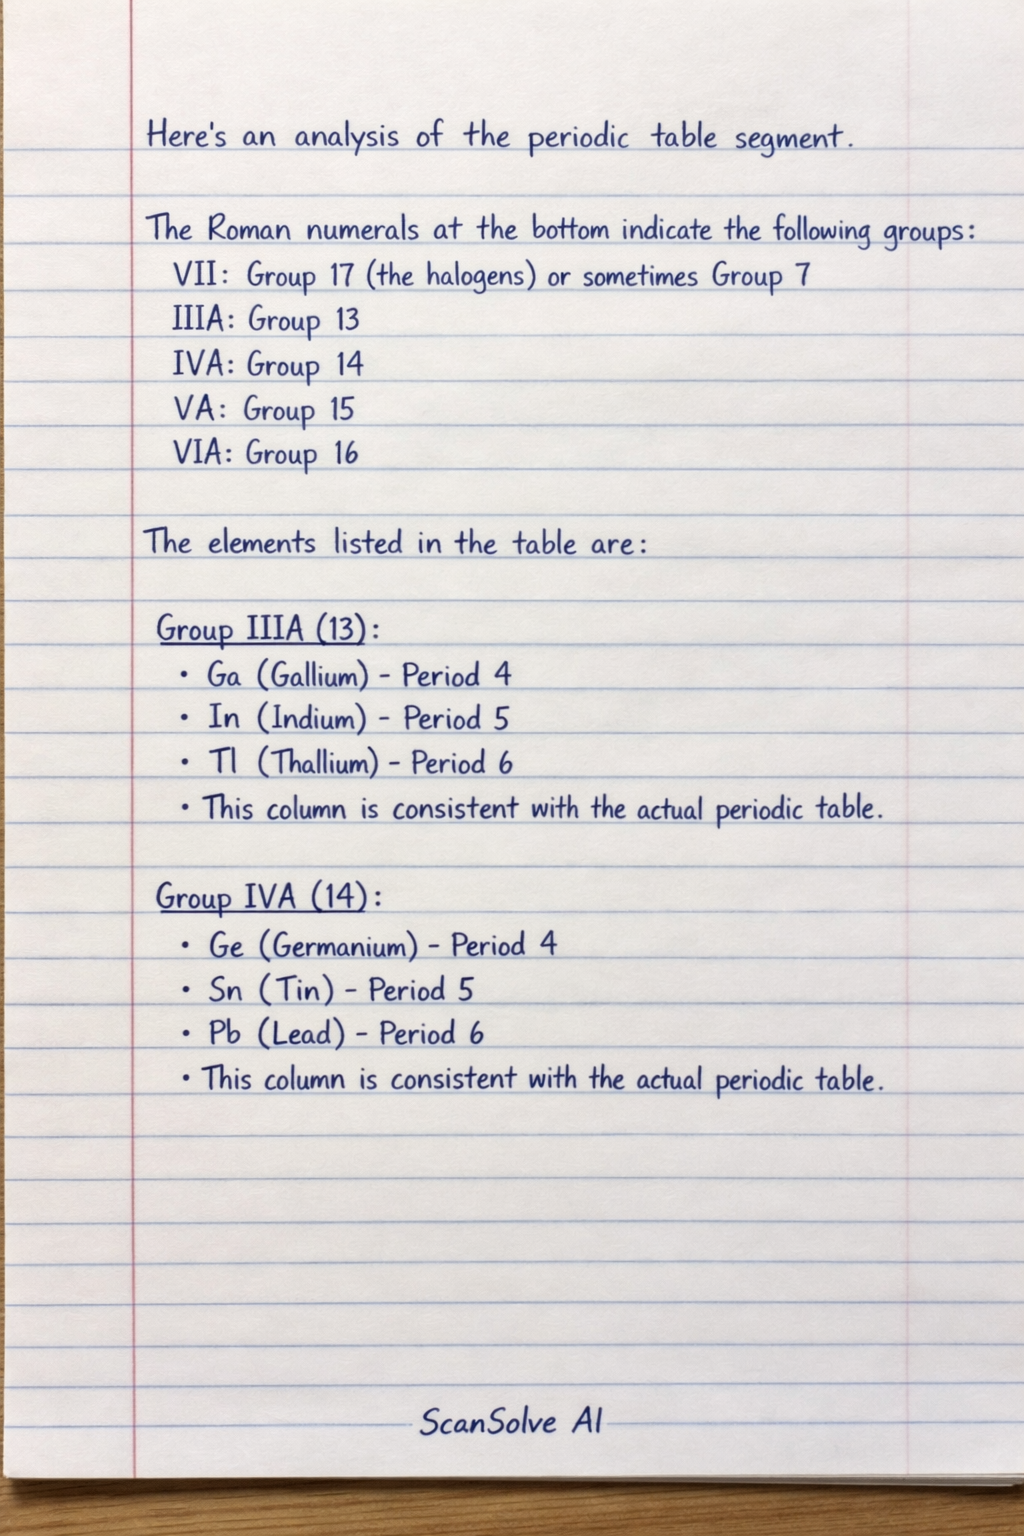 Here's an analysis of the periodic table segment.
The Roman numerals at the bottom indicate the following groups:
VII: Group 17 (the halogens) or sometimes Group 7
IIIA: Group 13
IVA: Group 14
VA: Group 15
VIA: Group 16
The elements listed in the table are:
Group IIIA (13):
• Ga (Gallium) - Period 4
• In (Indium) - Period 5
• Tl (Thallium) - Period 6
• This column is consistent with the actual periodic table.
Group IVA (14):
• Ge (Germanium) - Period 4
• Sn (Tin) - Period 5
• Pb (Lead) - Period 6
• This column is consistent with the actual periodic table.
ScanSolve AI